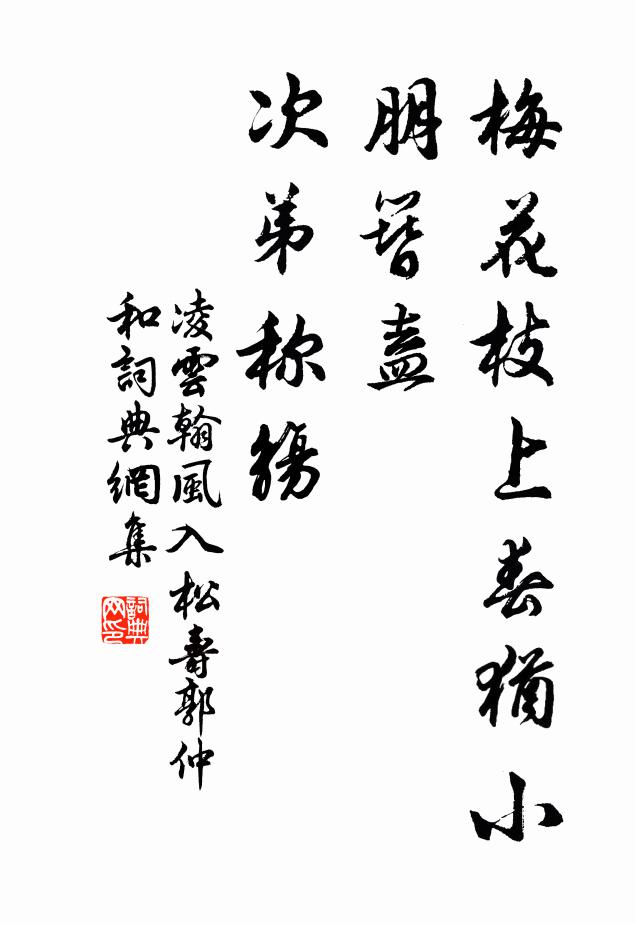 梅花枝上春猶小
朋簪盍
次弟称觴
凌雲翰風入松壽郭仲
和詞典網集
詞典網印